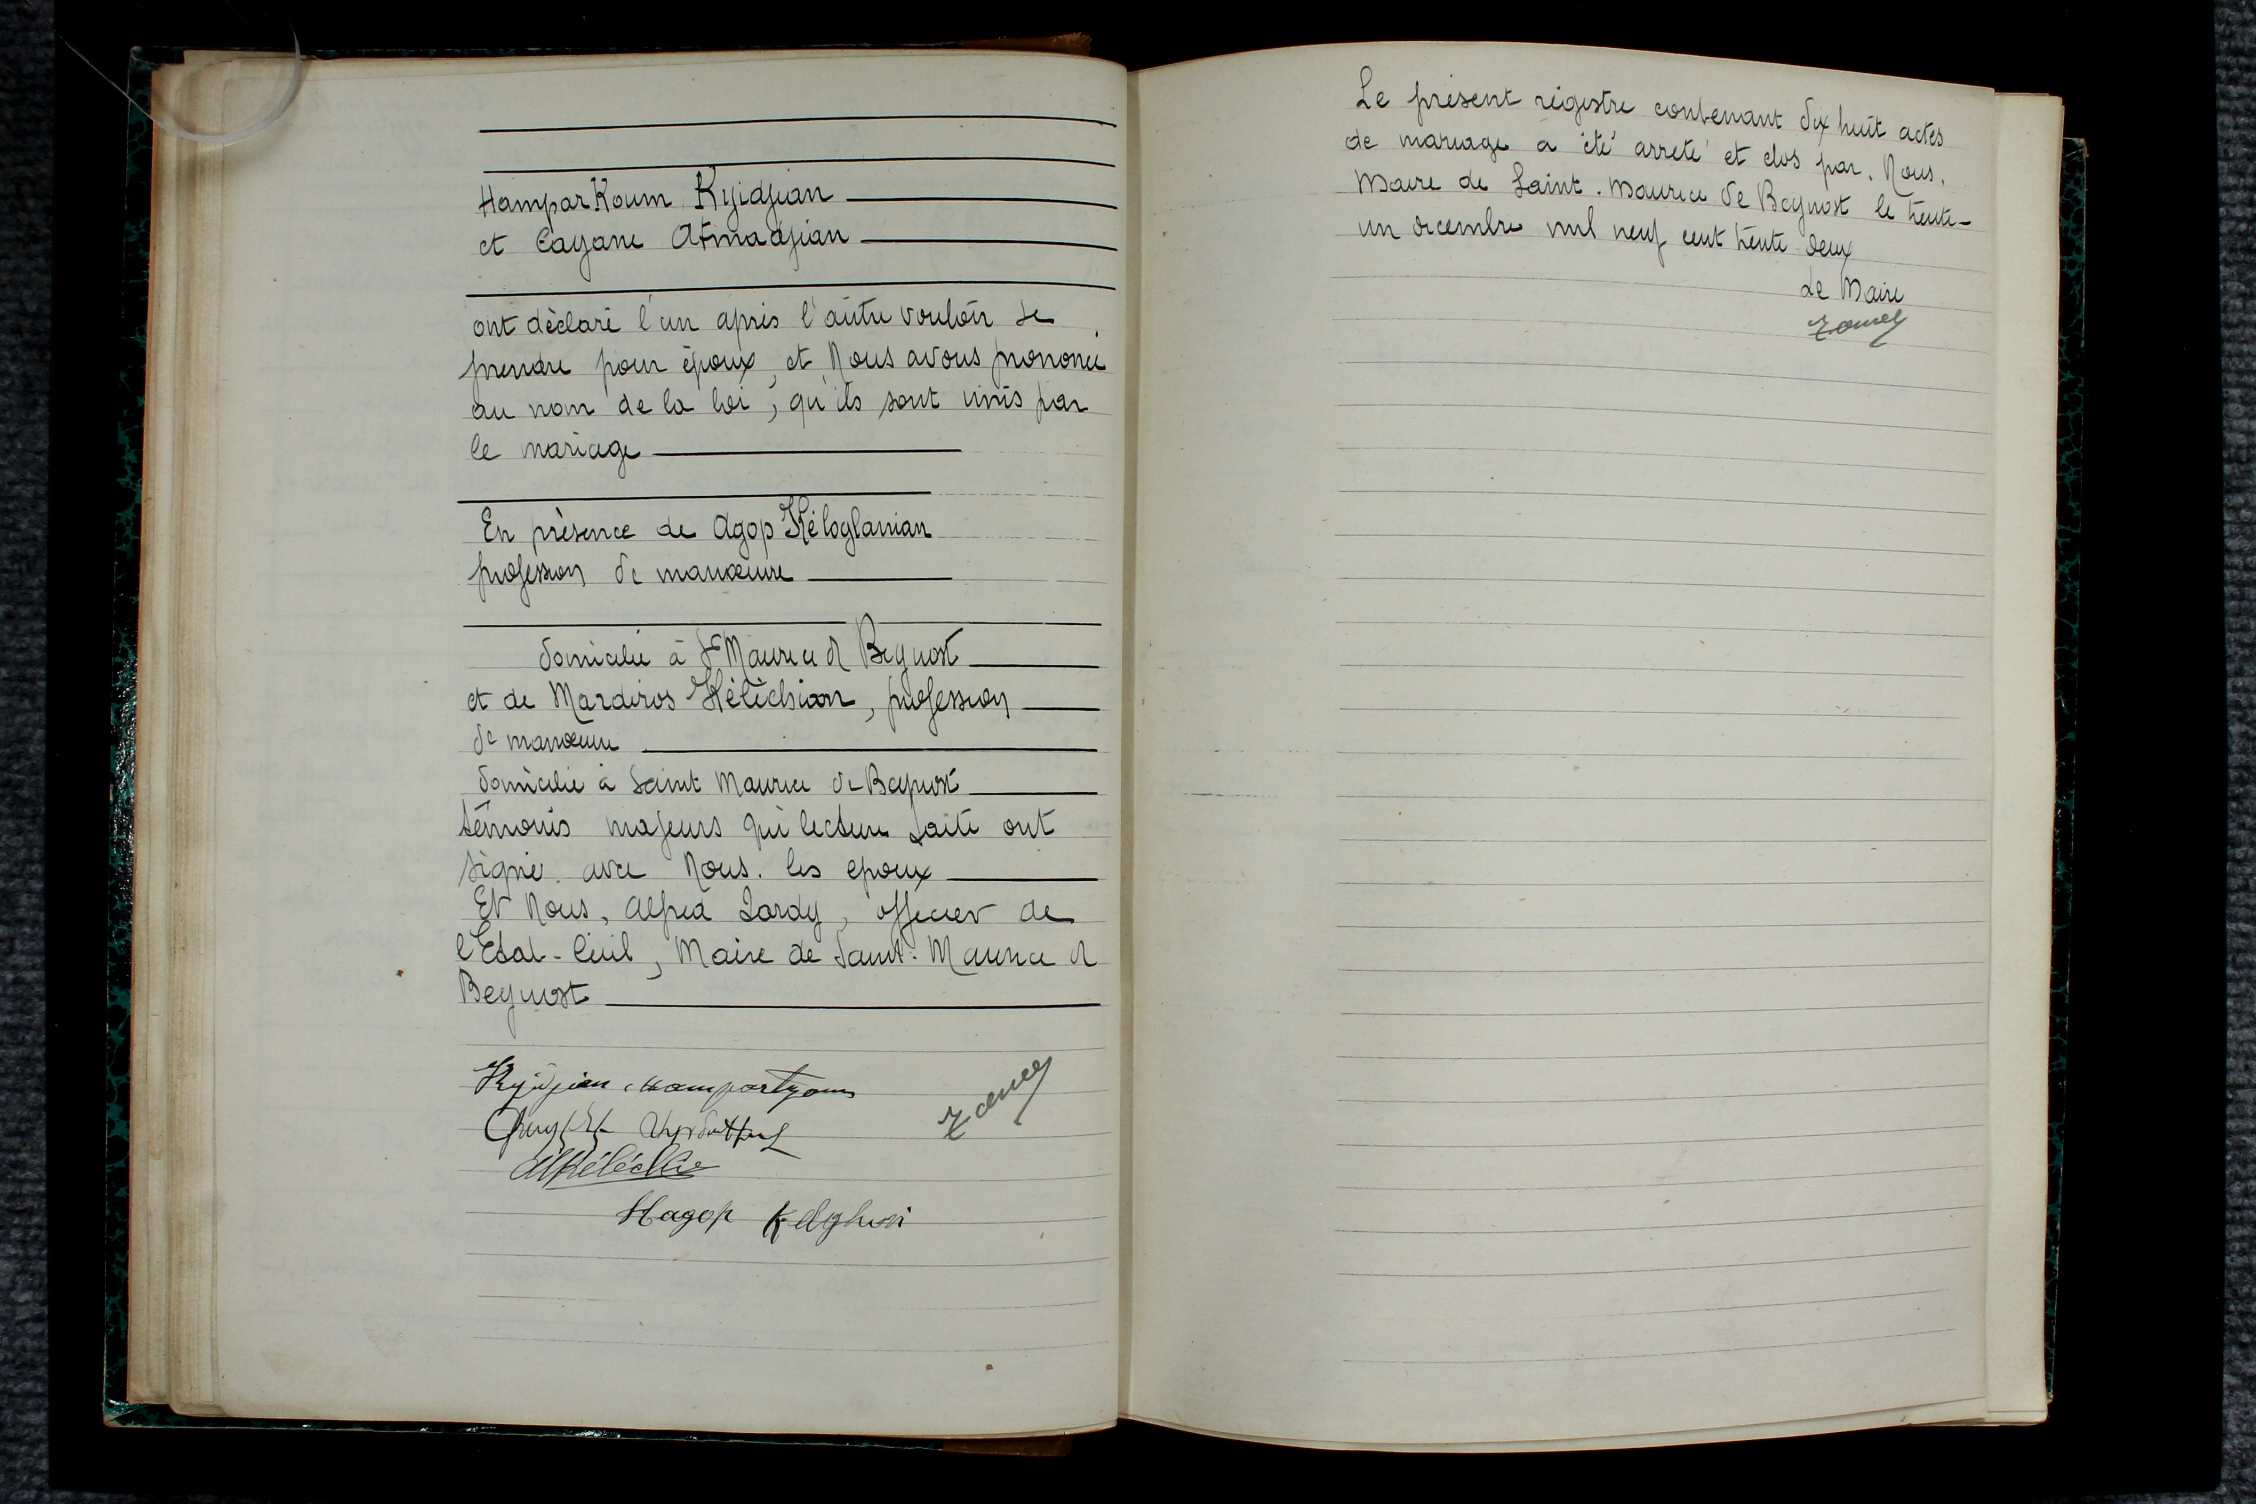 HamparKoum Kyidjian
et Cayane Atmadjian
ont déclaré l'un après l'autre vouloir se
prendre pour époux, et Nous avons prononcé
au nom de la loi, qu'ils sont unis par
le mariage
En présence de Agop Kéloglanian
profession de manœuvre
domicilié à St Maurice d Beynost
et de Mardiros Kélèchian, profession
de manœuvre
domicilié à Saint Maurice de Beynost
témoins majeurs qui lecture faite ont
signé avec Nous. les epoux
Et Nous, Alfred Jardy, officier de
l'Etat-Civil, Maire de Saint-Maurice d
Beynost
Kyidjian
Hagop
Le présent régistre contenant dix huit actes
de mariage a été arrêté et clos par. Nous.
Maire de Saint. Maurice de Beynost le trente-
un décembre mil neuf cent trente deux
Le Maire